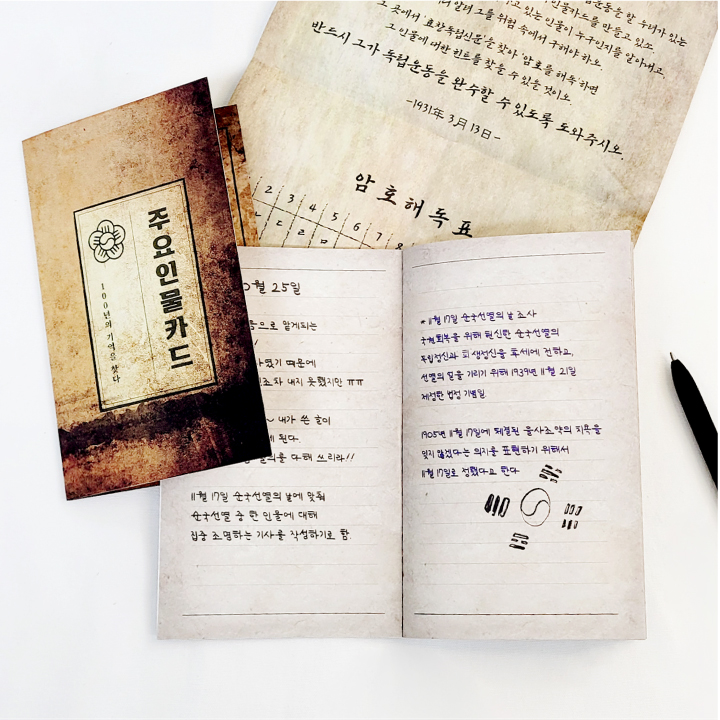 주요인물카드
100년의 기억을 찾다
독립운동을 할 우리가 있는
인물카드를 만들고 있소.
고 있는 인물이 누구인지를 알아내고,
알려 그를 위험 속에서 구해야 하오.
그 곳에서 '효창독립신문'을 찾아 '암호를 해독'하면
그 인물에 대한 힌트를 찾을 수 있을 것이오.
반드시 그가 독립운동을 완수할 수 있도록 도와주시오.
-1931年 3月 13日-
암호해독표
2 3 4 5 6 7 8
25일
으로 알게되는
였기 때문에
조차 내지 못했지만 ㅠㅠ
~ 내가 쓴 글이
게 된다.
을 다해 쓰리라!!
11월 17일 순국선열의 날에 맞춰
순국선열 중 한 인물에 대해
집중 조명하는 기사를 작성하기로 함.
* 11월 17일 순국선열의 날 조사
국권회복을 위해 헌신한 순국선열의
독립정신과 희생정신을 후세에 전하고,
선열의 얼을 기리기 위해 1939년 11월 21일
제정한 법정 기념일
1905년 11월 17일에 체결된 을사조약의 치욕을
잊지 않겠다는 의지를 표현하기 위해서
11월 17일로 정했다고 한다